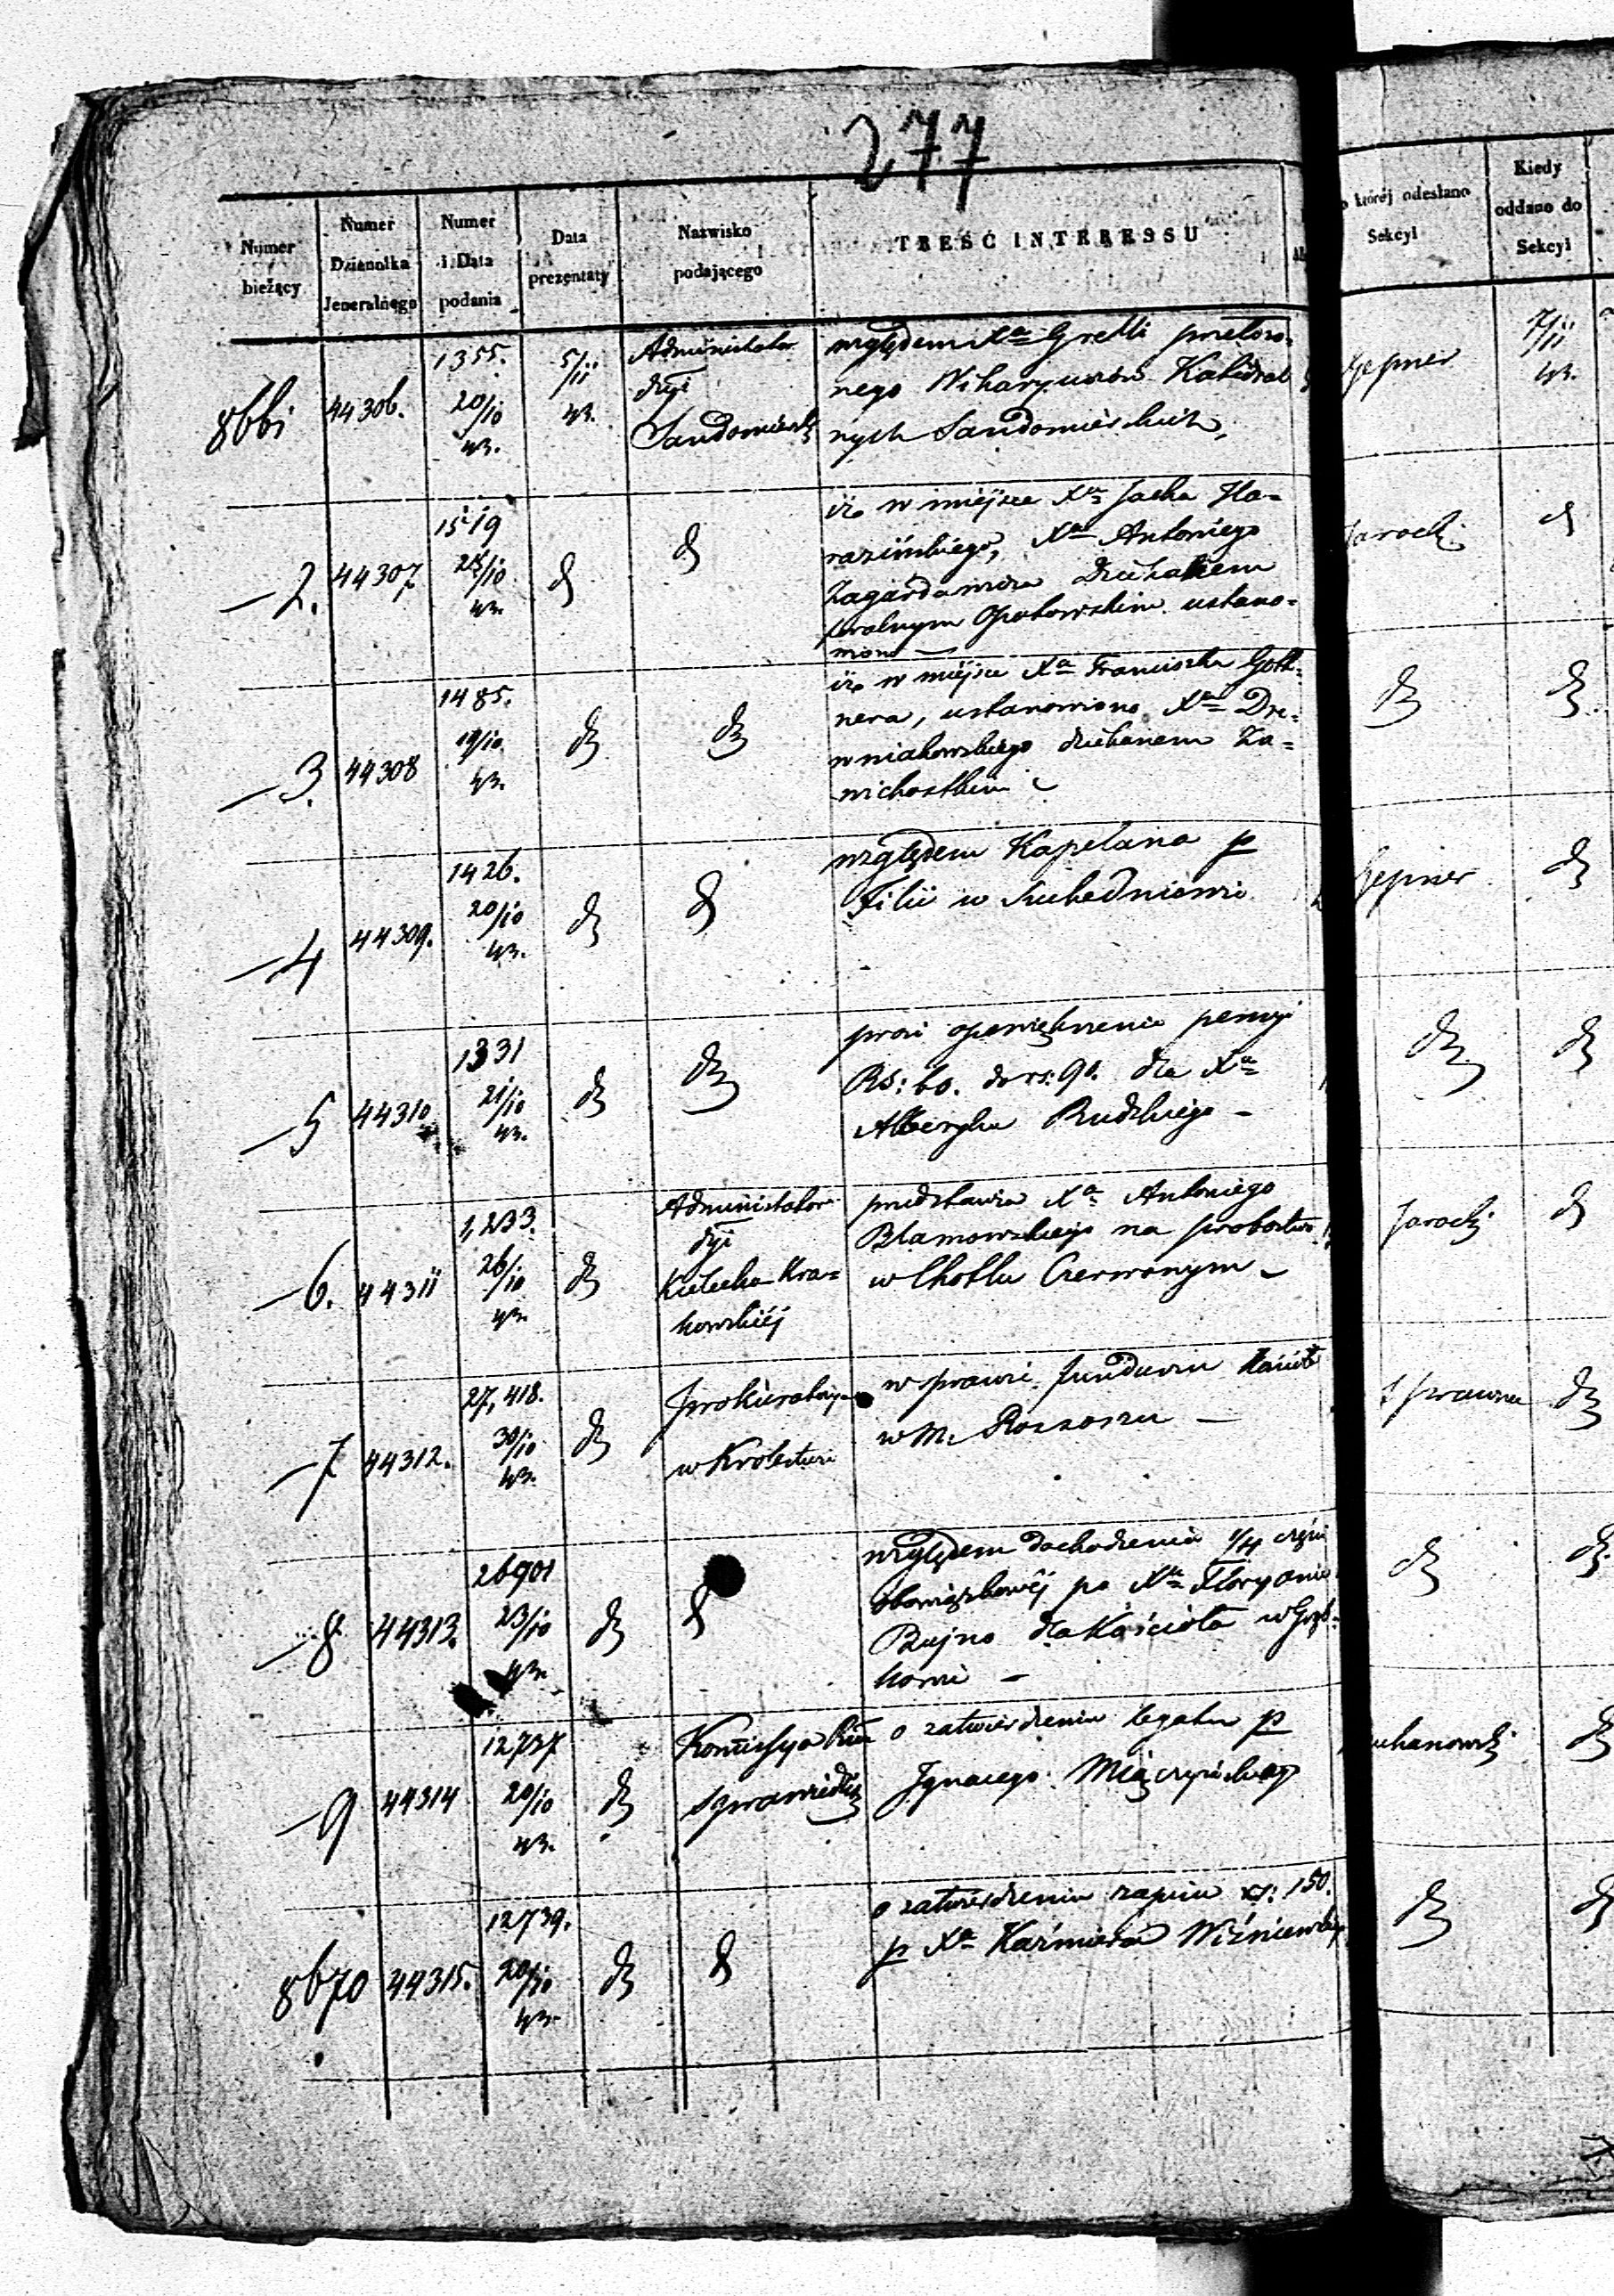 277
Numer bieżący
Numer Dziennika Jeneralnego
Numer i Data podania
Data prezentaty
Nazwisko podającego
TREŚĆ INTERESSU
której odesłano Sekcyi
Kiedy oddano do Sekcyi
8661 44306. 1355. 20/10 43. 5/11 43.
Administrator
Dyi
Sandomiersk
względem Xa Grelli przełożo=
nego Wikaryuszów Katedral
nych Sandomierskich,
Gepner 7/11 43.
2. 44307 1519 /10 43. d
d
iż w miejsce Xa Jacka Ha=
razińskiego, Xa Antoniego
Dziekanem
Opatowskim ustano=
wiono
Jarocki d
3. 44308 1485. 19/10. 43. d
d
iż w miejsce Xa Franciszka Gołk=
nera, ustanowiono Xa Dre=
wniakowskiego dziekanem Za=
wichostkim
d d
4 44309. 1426. 20/10 43. d
d
względem Kapelana p
Filii w Suchedniowie
Gepner d
5 44310 1331 21/10 43. d
d
prosi o powiększenie pensyi
Rs: 60. do rs: 90. dla Xa
Alberyka Rudzkiego -
d d
6. 44311 1,233. 26/10 43. d
Administrator
Dyi
Kielecko-Kra=
kowskiéj
przedstawia Xa Antoniego
Blamowskiego na probostwo
w Chotlu Czerwonym -
Jarocki d
7 44312. 27,418. 30/10 43. d
Prokuratorya
w Królestwie
w sprawie funduszu Kościoł
w M. Rossoszu -
Prawna d
8 44313. 26901 23/10 43. d
d
względem dochodzenia 1/4 części
obowiązkowéj po Xa Floryanie
Bujno dla Kościoła w Gręb=
kowie -
d d
9 44314 12737 20/10 43. d
Komissya Rzą
Sprawiedliw
o zatwierdzenie legatu p
Ignacego Miączyńskiego
d
8670 44315. 12739. 20/10 43. d
d
o zatwierdzenie zapisu rs: 150.
p Xa Kaźmierza Wiśniewskiego
d d